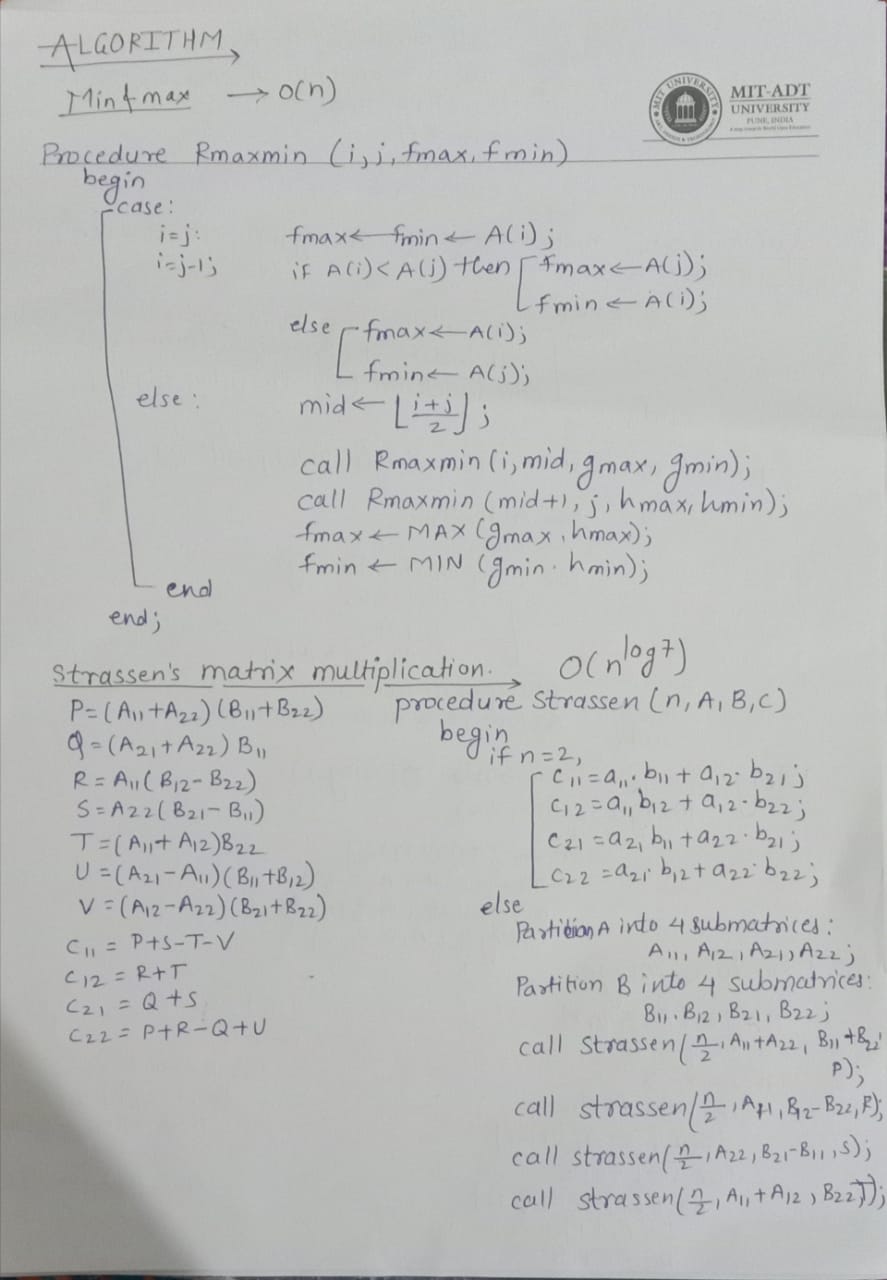 ALGORITHM
Min & max → O(n)
MIT-ADT
UNIVERSITY
PUNE, INDIA
Procedure Rmaxmin (i, j, fmax, fmin)
begin
case:
i=j: fmax ← fmin ← A(i);
i=j-1; if A(i) < A(j) then fmax ← A(j);
fmin ← A(i);
else fmax ← A(i);
fmin ← A(j);
else: mid ← ⌊(i+j)/2⌋;
call Rmaxmin (i, mid, gmax, gmin);
call Rmaxmin (mid+1, j, hmax, hmin);
fmax ← MAX (gmax, hmax);
fmin ← MIN (gmin. hmin);
end
end;
Strassen's matrix multiplication. → O(n^log7)
P=(A11+A22)(B11+B22)
Q=(A21+A22)B11
R=A11(B12-B22)
S=A22(B21-B11)
T=(A11+A12)B22
U=(A21-A11)(B11+B12)
V=(A12-A22)(B21+B22)
C11 = P+S-T-V
C12 = R+T
C21 = Q+S
C22 = P+R-Q+U
procedure Strassen (n, A, B, C)
begin
if n=2,
C11=a11.b11+a12.b21;
C12=a11b12+a12.b22;
C21=a21b11+a22.b21;
C22=a21.b12+a22.b22;
else
Partition A into 4 submatrices:
A11, A12, A21, A22;
Partition B into 4 submatrices:
B11. B12, B21, B22;
call Strassen(n/2, A11+A22, B11+B22,
P);
call strassen(n/2, A11, B12-B22, R);
call strassen(n/2, A22, B21-B11, S);
call strassen(n/2, A11+A12, B22, T);